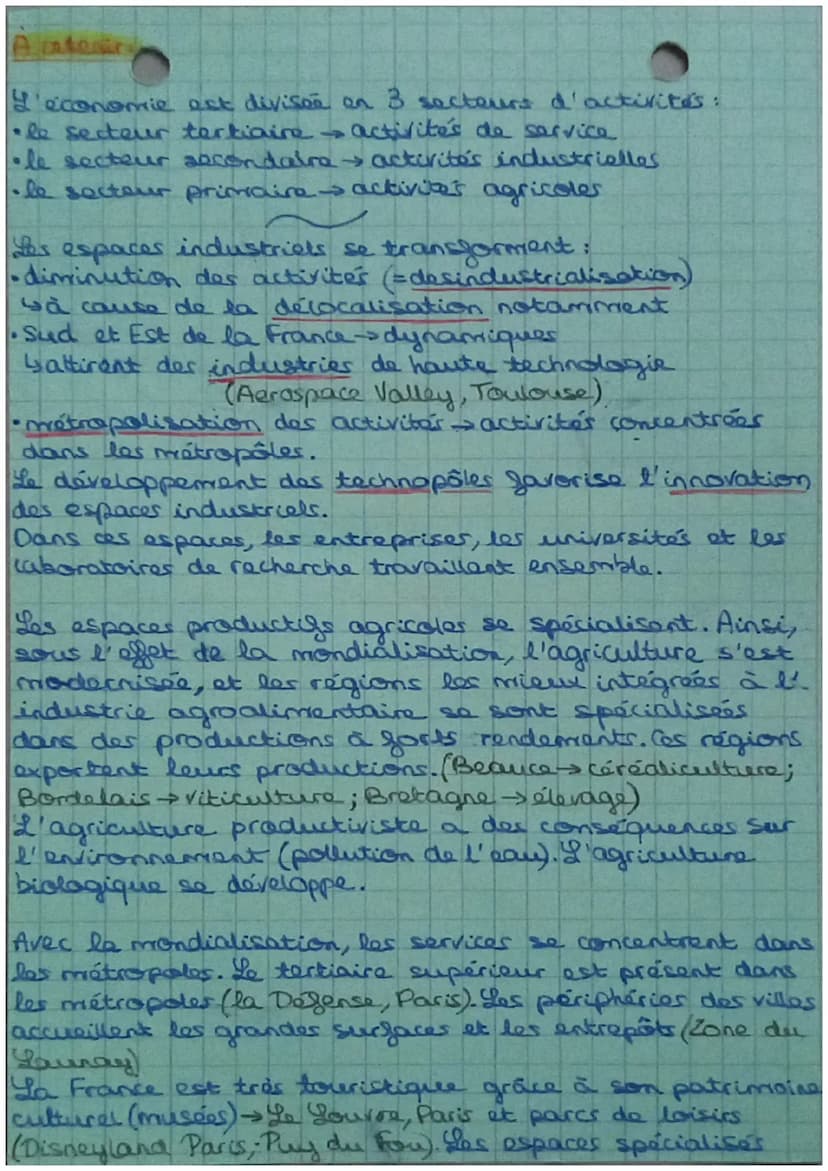 À retenir:
L'économie est divisée en 3 secteurs d'activités :
• le secteur tertiaire → activités de service
• le secteur secondaire → activités industrielles
• le secteur primaire → activités agricoles
Les espaces industriels se transforment :
• diminution des activités (= desindustrialisation)
↳ à cause de la délocalisation notamment
• Sud et Est de la France → dynamiques
↳ attirent des industries de haute technologie
(Aerospace Valley, Toulouse)
• métropolisation des activités → activités concentrées
dans les métropôles.
Le développement des technopôles favorise l'innovation
des espaces industriels.
Dans ces espaces, les entreprises, les universités et les
laboratoires de recherche travaillent ensemble.
Les espaces productifs agricoles se spécialisent. Ainsi,
sous l'effet de la mondialisation, l'agriculture s'est
modernisée, et les régions les mieux intégrées à l'
industrie agroalimentaire se sont spécialisées
dans des productions à forts rendements. Ces régions
exportent leurs productions. (Beauce → céréaliculture ;
Bordelais → viticulture ; Bretagne → élevage)
L'agriculture productiviste a des conséquences sur
l'environnement (pollution de l'eau). L'agriculture
biologique se développe.
Avec la mondialisation, les services se concentrent dans
les métropoles. Le tertiaire supérieur est présent dans
les métropoles (la Défense, Paris). Les périphéries des villes
accueillent les grandes surfaces et les entrepôts (Zone du
Launay)
La France est très touristique grâce à son patrimoine
culturel (musées) → Le Louvre, Paris et parcs de loisirs
(Disneyland Paris, Puy du Fou). Les espaces spécialisés